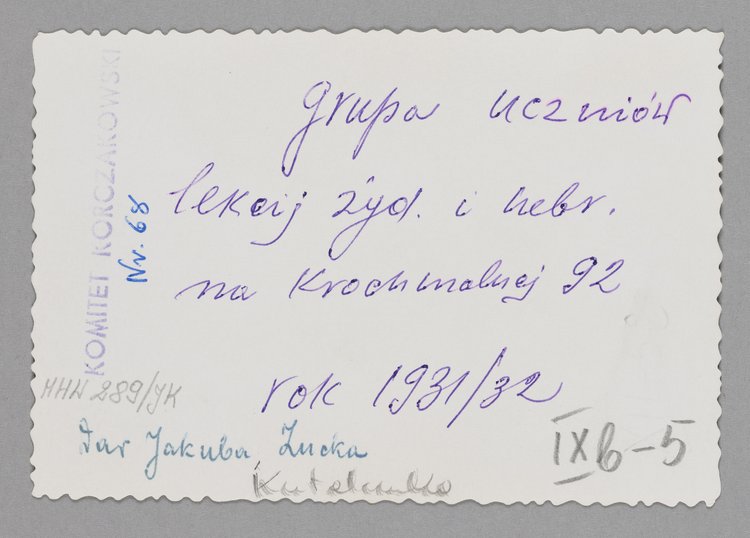 Grupa uczniów
lekcij żyd. i hebr.
na Krochmalnej 92
rok 1931/32
KOMITET KORCZAKOWSKI
Nr. 68
MHW 289/JK
Dar Jakuba Zucka
IXb-5